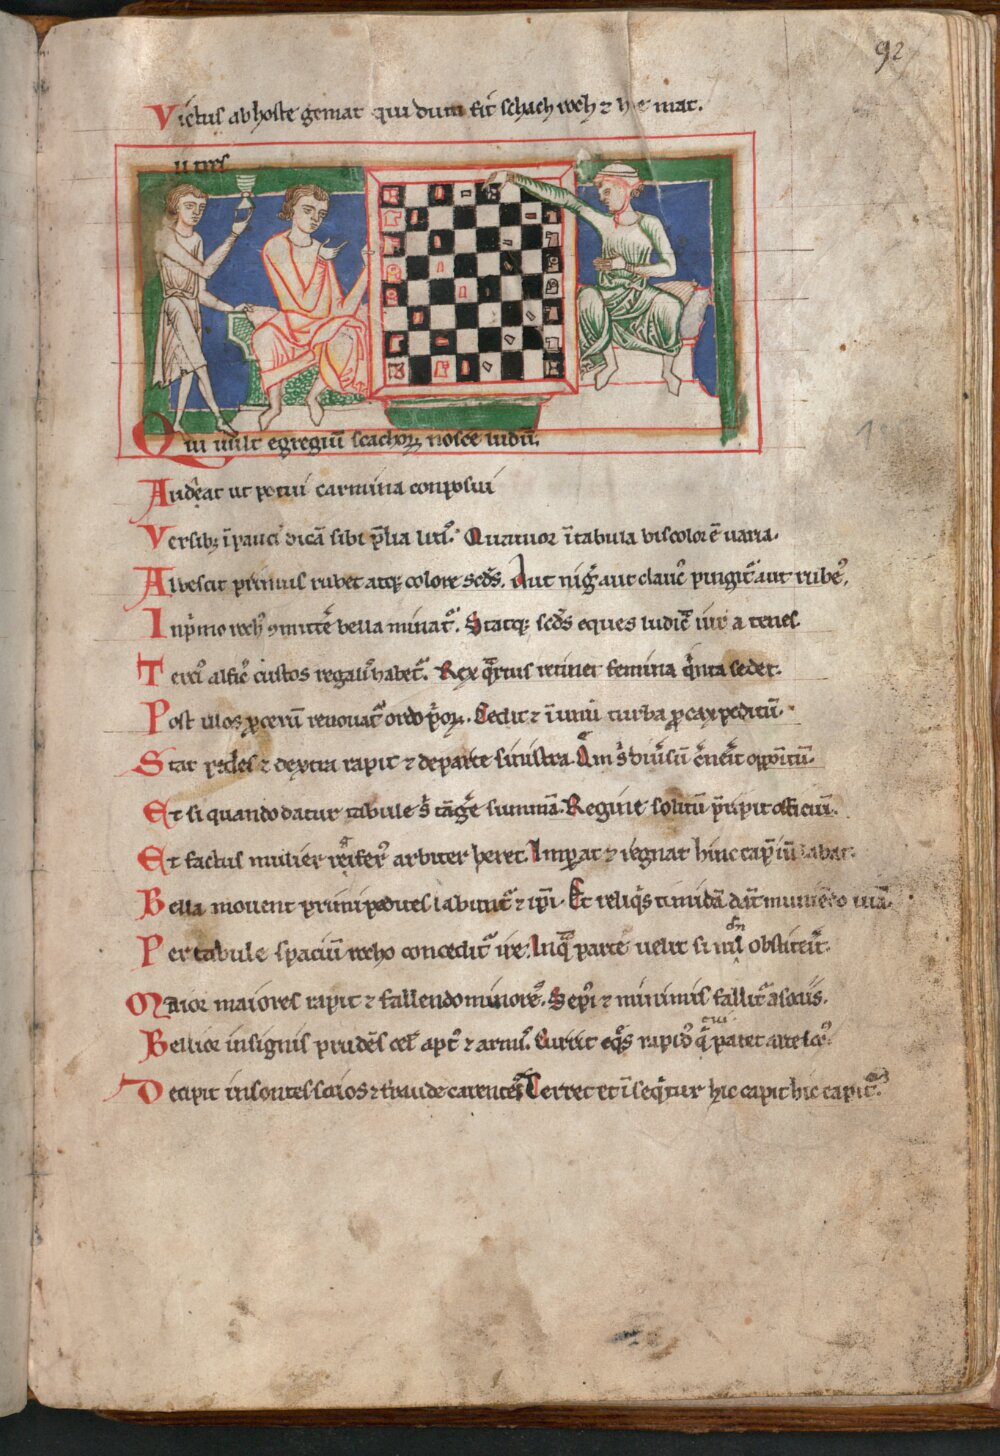 92
Victus ab hoste gemat qui dum fit schach roch ⁊ he mat.
Qui uult egregiū scachoꝝ noscē ludū.
Audeat ut potui carmina conposui
Versibꝫ ī pauci᷒ dicā sibi p̄lia lit᷒. Quatuor ī tabula bis colore᷒ ē uaria.
Albescit primus rubet atqꝫ colore sc̄ds. Aut nig᷒ aut glauc᷒ pingit᷒ aut rube᷒.
In pͥmo roch᷒ ꝯmittē bella minat᷒. Statqꝫ sc̄ds eques ludicͣ iurͣ tenes
Terci᷒ alfic᷒ custos regal᷒ habet᷒. Rex qͣrtus retinet femina qͥnta sedet.
Post illos ꝓcerū reuocat᷒ ordo pͥoꝝ. Cedit ⁊ ī unū turba ꝓcax peditū.
Stat pedes ⁊ dextra rapit ⁊ de parte sinistra. Qm̄ sͥ diu᷒sū c᷒nerit oppoͥtū.
Et si quando datur tabule sͥ tāg᷒e summā. Regine solitū p̄ripit officiū.
Et factus mulier referͣ arbiter heret. Imꝑat ⁊ regnat hinc capͥ iū labat.
Bella mouent primi pedites labunt᷒ ⁊ ip̄i. Et reliqͥs timidā dāt muriēdo uiā.
Per tabule spaciū rocho concedit᷒ ire. Inqͣ parte uelit si nil obstiterit.
Maior maiores rapit ⁊ fallendo minore᷒. Sep᷒ ⁊ minimis fallit᷒ a sociis.
Bellior insignis prudēs cel᷒ apt᷒ ⁊ armi᷒. Currit eqͦs rapid᷒ qͣ patet arte loc᷒.
Decipit insontes socios ⁊ fraude carentes Terret et ī seqͥtur hic capit hic capit᷒.